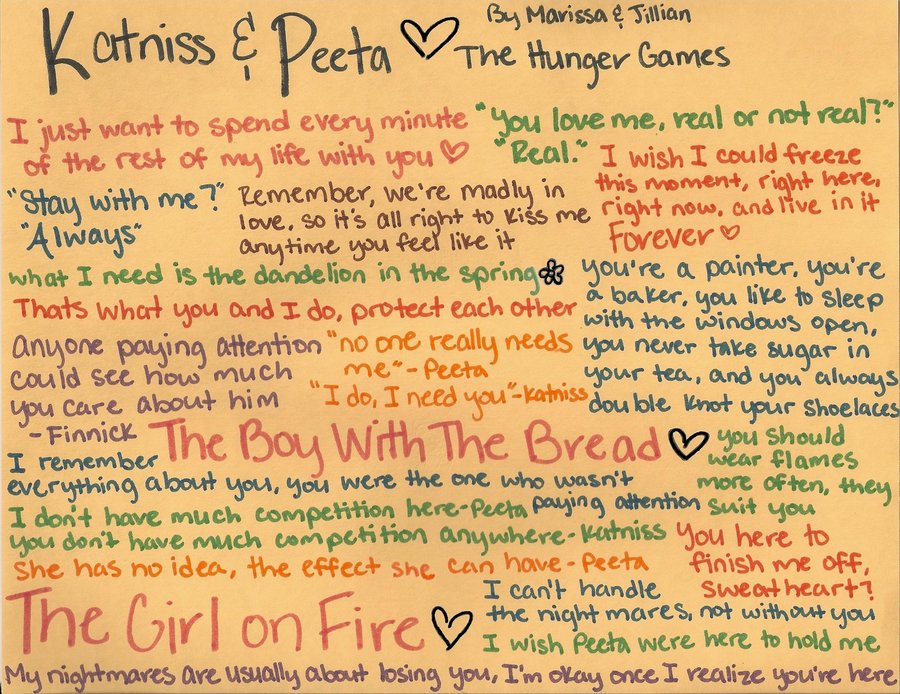 Katniss & Peeta
By Marissa & Jillian
The Hunger Games
I just want to spend every minute
of the rest of my life with you
"You love me, real or not real?"
"Real."
"Stay with me?"
"Always"
Remember, we're madly in
love, so it's all right to kiss me
anytime you feel like it
I wish I could freeze
this moment, right here,
right now, and live in it
Forever
what I need is the dandelion in the spring
Thats what you and I do, protect each other
you're a painter, you're
a baker, you like to sleep
with the windows open,
you never take sugar in
your tea, and you always
double knot your shoelaces
Anyone paying attention
could see how much
you care about him
- Finnick
"no one really needs
me"- Peeta
"I do, I need you"- Katniss
The Boy With The Bread
you should
wear flames
more often, they
suit you
I remember
everything about you, you were the one who wasn't
paying attention
I don't have much competition here-Peeta
you don't have much competition anywhere- Katniss
She has no idea, the effect she can have - Peeta
You here to
finish me off,
sweetheart?
The Girl on Fire
I can't handle
the night mares, not without you
I wish Peeta were here to hold me
My nightmares are usually about losing you, I'm okay once I realize you're here